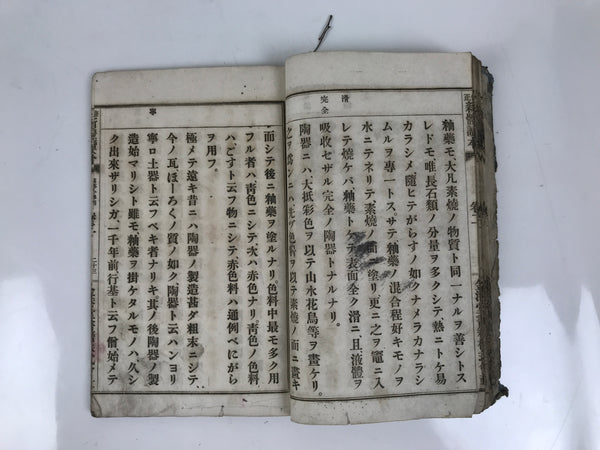 釉藥モ、大凡素燒ノ物質ト同一ナルヲ善シトス
レドモ唯長石類ノ分量ヲ多クシテ熱ニトケ易
カラシメ隨ヒテがらすノ如クナメラカナラシ
ムルヲ專一トス、サテ釉藥ノ混合程好キモノヲ
水ニテネリテ素燒ノ面ニ塗リ更ニ之ヲ竈ニ入
レテ燒ケバ釉藥トケテ表面全ク滑ニ且液體ヲ
吸收セザル完全ノ陶器トナルナリ、
陶器ニハ大抵彩色ヲ以テ山水花鳥等ヲ畫ケリ、
ニハ先ヅ色料ヲ以テ素燒ノ面ニ畫キ
滑
完全
而シテ後ニ釉藥ヲ塗ルナリ色料中最モ多ク用
フル者ハ靑色ニシテ、次ハ赤色ナリ、靑色ノ色料
ハごすト云フ物ニシテ赤色料ハ通例べにがら
ヲ用フ、
極メテ遠キ昔ニハ陶器ノ製造甚ダ粗末ニシテ、
今ノ瓦ほーろくノ質ノ如ク陶器ト云ハンヨリ
寧ロ土器ト云フベキ者ナリキ其ノ後陶器ノ製
造始マリシト雖モ釉藥ヲ掛ケタルモノハ、久シ
ク出來ザリシガ、一千年前行基ト云フ僧始メテ
寧